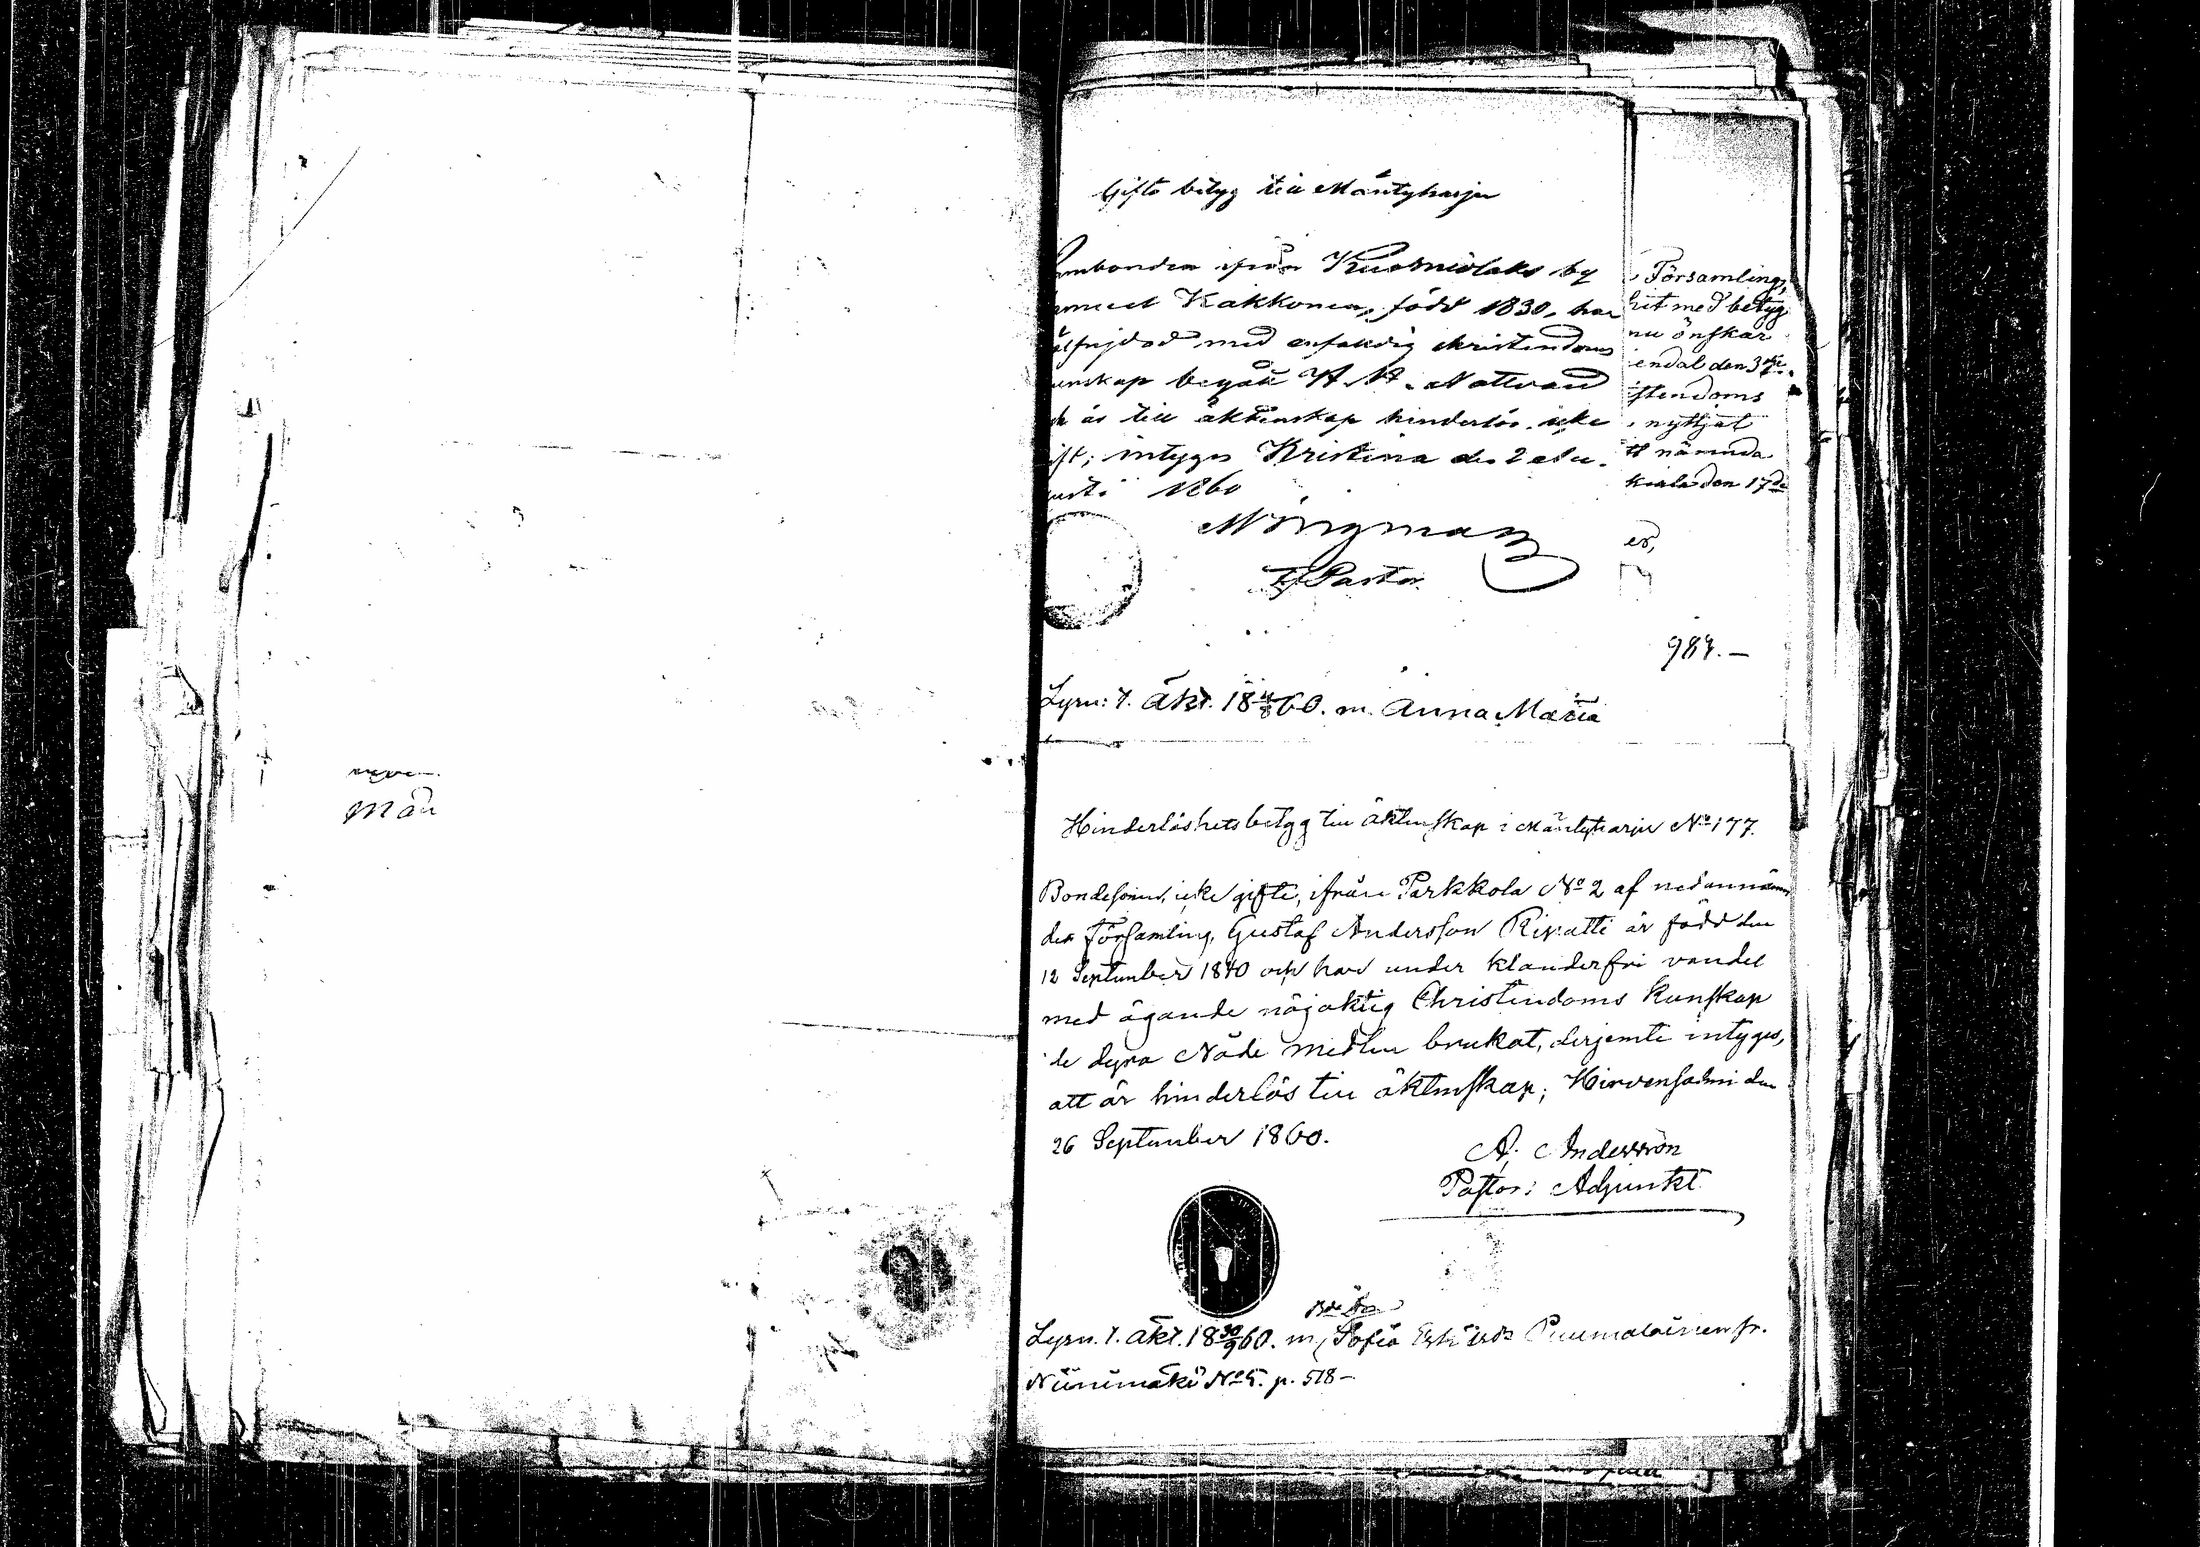 Gifto betyg till Mäntyharju
ifrån Kuortneolaks by
Kakkonen, född 1830, har
med enfaldig christendoms
begått H. H. Nattvard
är till äktenskap hinderlös. icke
intyges Kristina den 2 Au-
1860
T.f. Pastor.
Församling,
hit med betyg
nu önskar
endal den 3
stendoms
nyttjat
nämnda
den 17de
984. —
Lysn: t. äkt. 18 4/8 60. m. Anna Maria
män
Hinderlöshetsbetyg till äktenskap i Mäntyharju No 177.
Bondesonen, icke gifte, ifrån Parkkola No 2 af nedannämn
den Församling, Gustaf Andersson Ripatti är född den
12 September 1840 och har under klanderfri vandel
med ägande nöjaktig Christendoms kunskap
de dyra Nåde medlen brukat, derjemte intyges,
att är hinderlös till äktenskap; Hirvensalmi den
26 September 1860.
A. Andersson
Pastors Adjunkt
Lysn. t. äkt. 18 30/9 60. m. Sofia Puumalainen fr.
Niinimäki No 5. p. 518 —